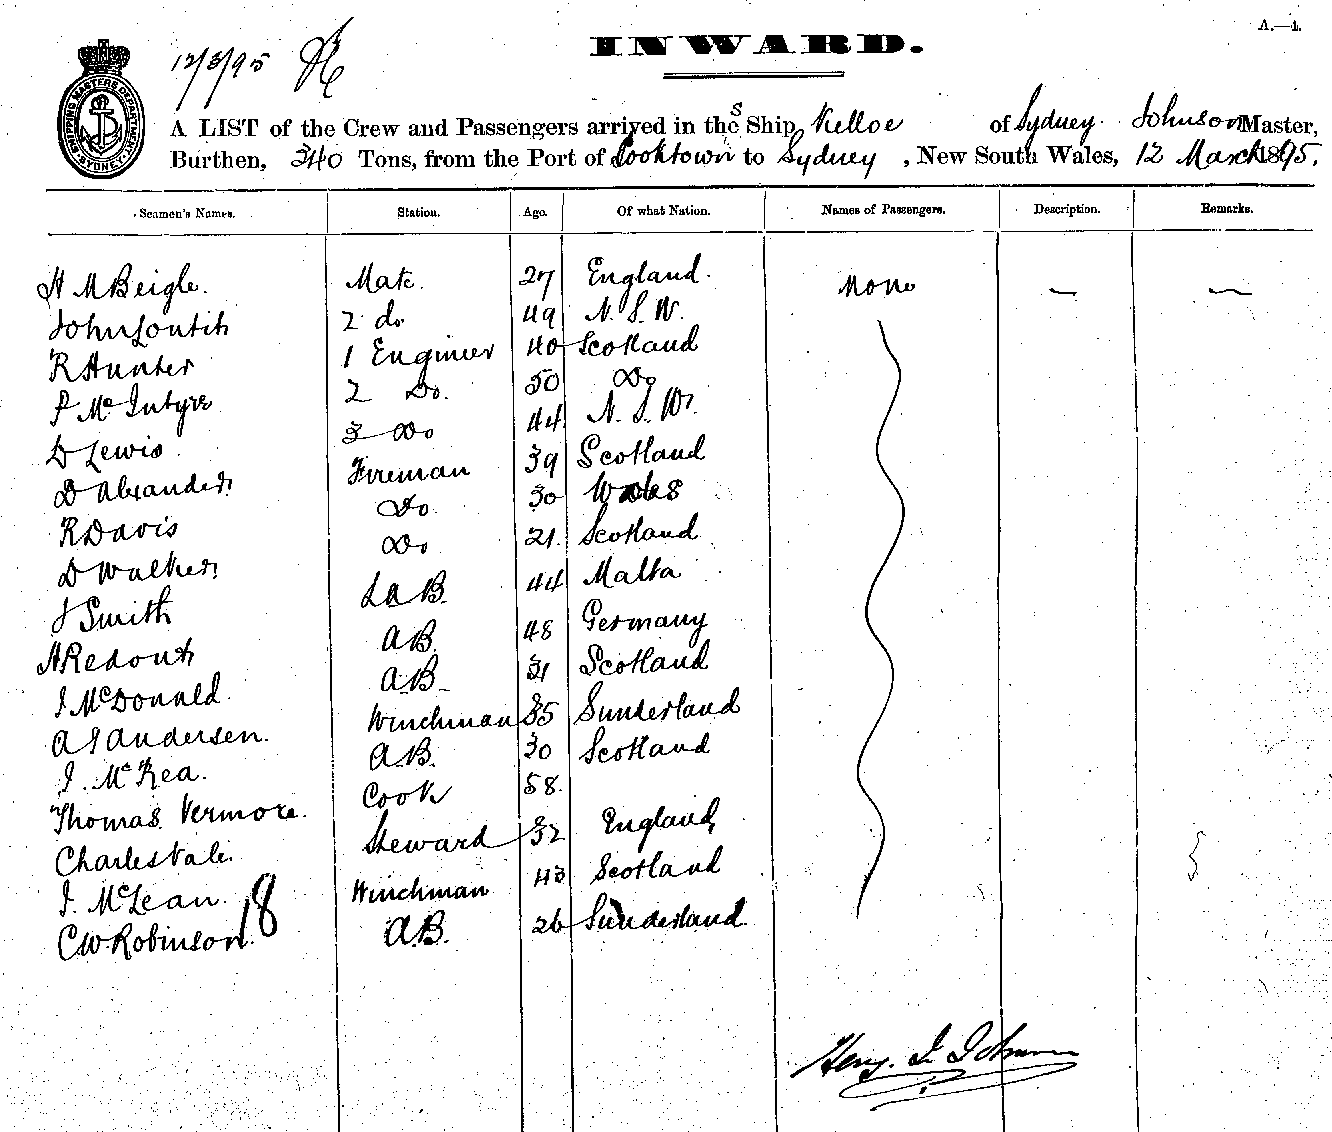 A.—4.
INWARD.
12/3/95
SHIPPING MASTERS DEPARTMENT SYDNEY
A LIST of the Crew and Passengers arrived in the S Ship Kelloe of Sydney Johnson Master,
Burthen, 340 Tons, from the Port of Cooktown to Sydney, New South Wales, 12 March 1895.
Seamen's Names. Station. Age. Of what Nation. Names of Passengers. Description. Remarks.
H McBeigle. Mate. 27 England. None — —
John Loutit 2 do 49 N. S. W.
R Hunter 1 Engineer 40 Scotland
P McIntyre 2 Do. 50 Do
D Lewis 3 Do 44 N. S. W.
D Alexander Fireman 39 Scotland
R Davis Do. 30 Wales
D Walker Do 21. Scotland
J Smith LaB. 44 Malta
H Redout AB. 48 Germany
J. McDonald. AB 31 Scotland
A J Andersen. Winchman 35 Sunderland
J. McRea. AB. 30 Scotland
Thomas Vermore. Cook 58.
Charles Vale. Steward 32 England,
J. McLean. Winchman 43 Scotland
C W Robinson. 18 A.B. 26 Sunderland
Heny. J. Johnson